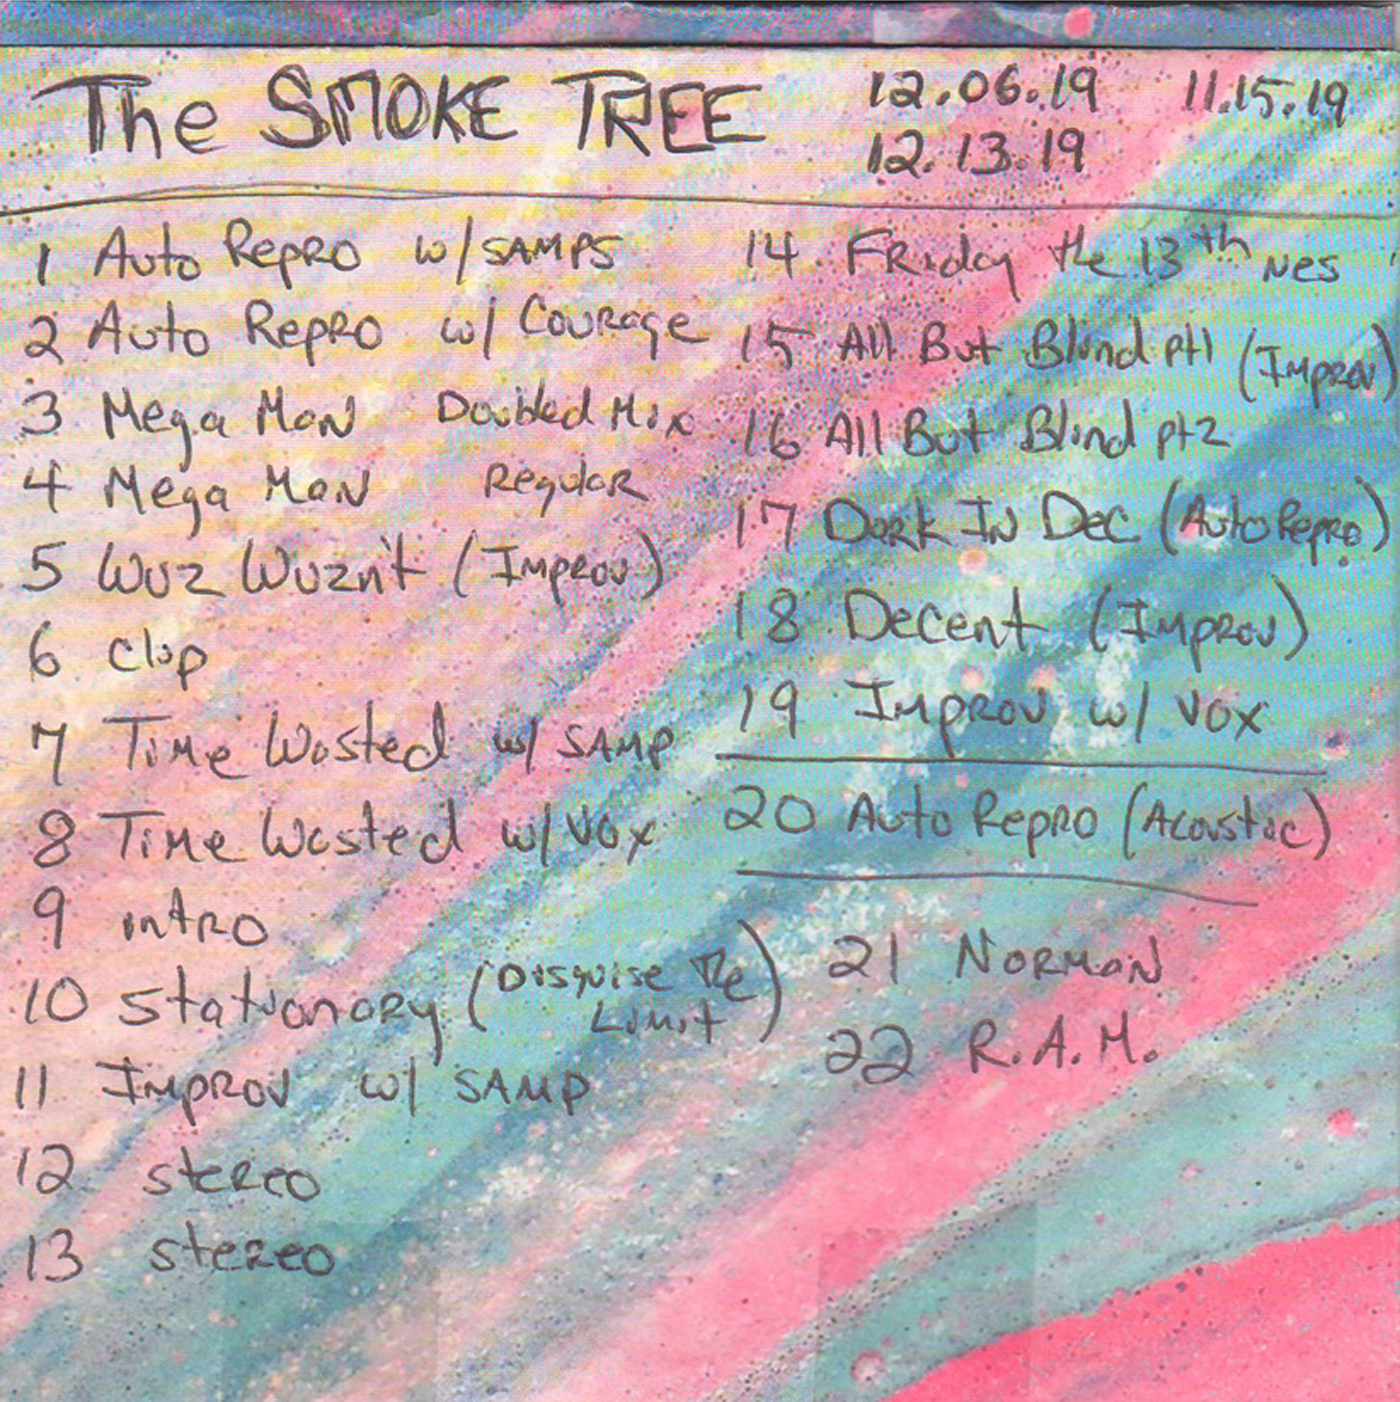 The SMOKE TREE
12.06.19 11.15.19
12.13.19
1 Auto Repro w/SAMPS
2 Auto Repro w/ Courage
3 Mega Man Doubled Mix
4 Mega Man Regular
5 Wuz Wuzn't (Improv)
6 Clap
7 Time Wasted w/ SAMP
8 Time Wasted w/VOX
9 intro
10 Stationary (Disguise The
Limit)
11 Improv w/ SAMP
12 stereo
13 stereo
14 Friday the 13th NES
15 All But Blind pt1 (Improv)
16 All But Blind pt2
17 Dark In Dec (Auto Repro)
18 Decent (Improv)
19 Improv w/ VOX
20 Auto Repro (Acoustic)
21 Norman
22 R.A.M.